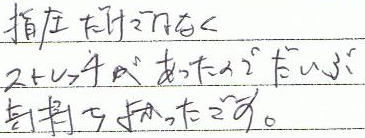 指圧だけでなく
ストレッチがあったのでだいぶ
よかったです。